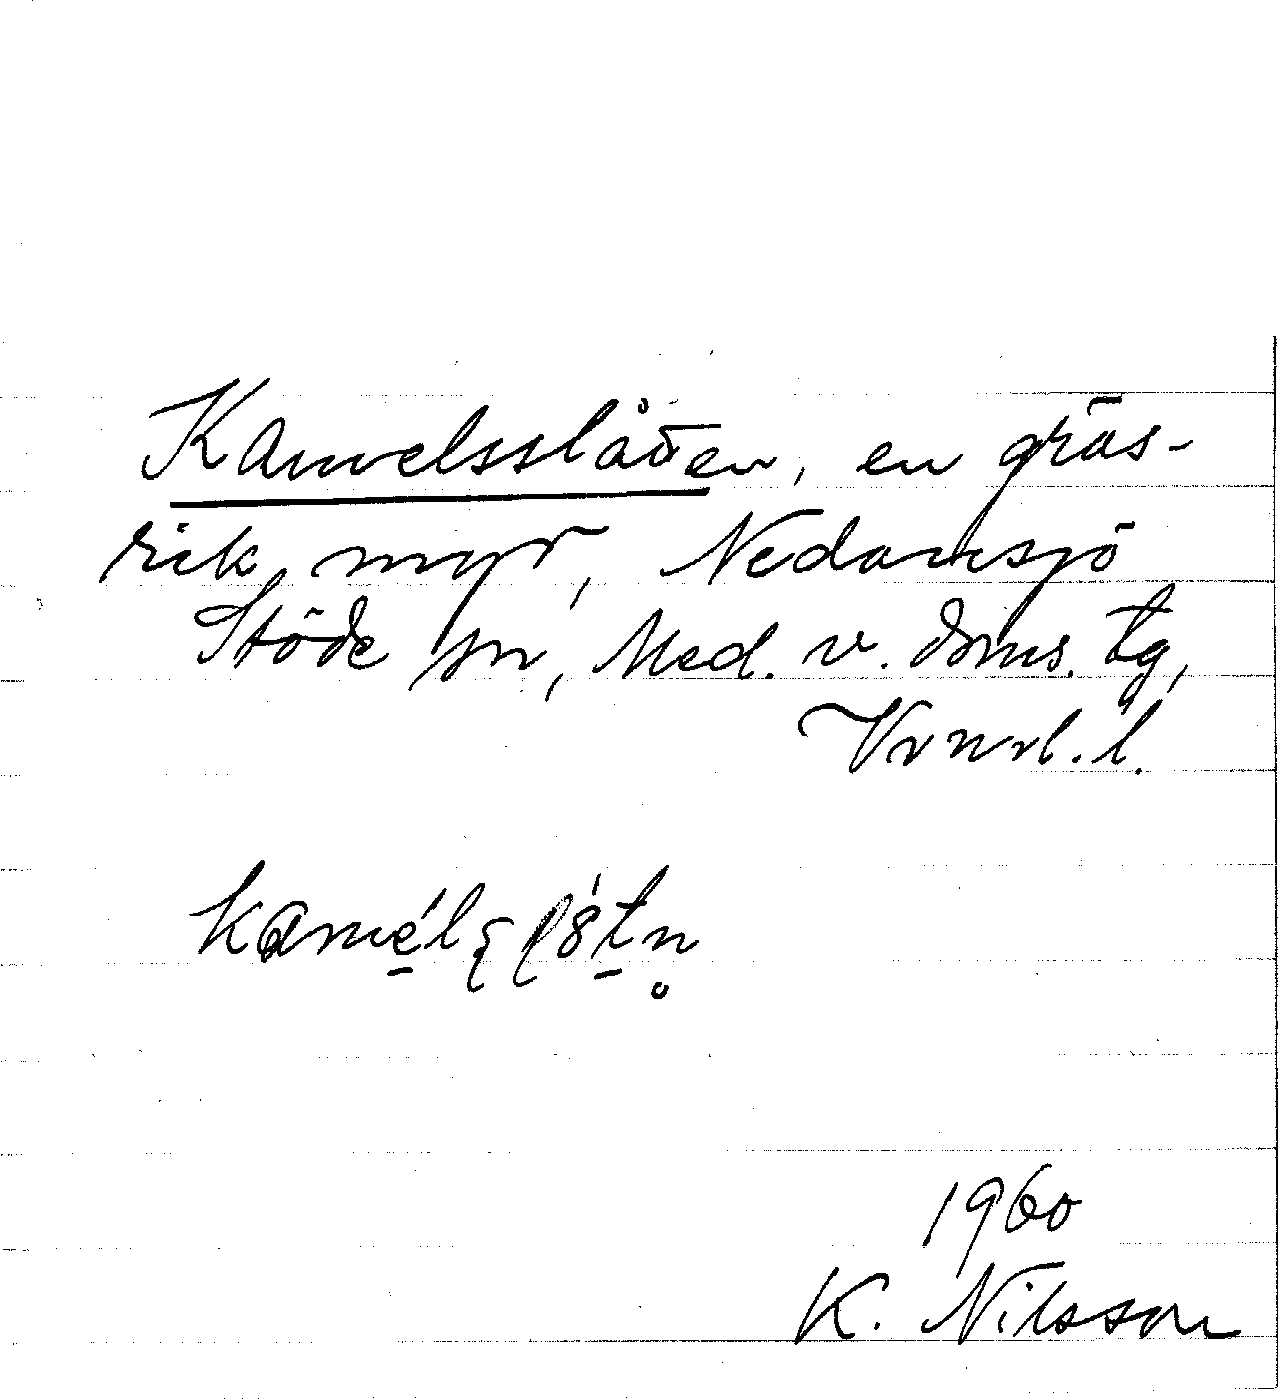 Kamelsslåtten, en gräs-
rik myr, Nedansjö
Stöde sn, Med. v. doms. tg,
Vvnrl. l.
1960
K. Nilsson